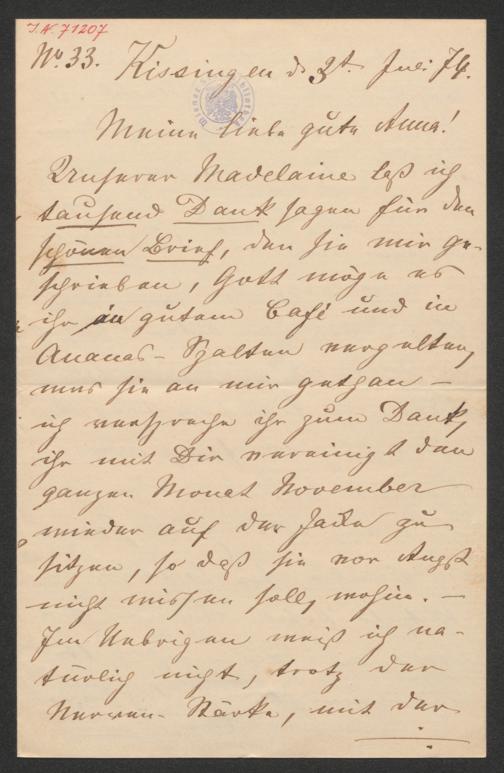 I.N. 71207
No 33. Kissingen d. 3t Juli 74.
Meine liebe gute Anna!
Unserer Madelaine laß ich
tausend Dank sagen für den
schönen Brief, den sie mir ge-
schrieben, Gott möge es
ihr in gutem Café und in
Ananas-Spalten vergelten,
was sie an mir gethan –
ich verspreche ihr zum Dank,
ihr mit Dir vereinigt den
ganzen Monat November
wieder auf der Jacke zu
sitzen, so daß sie vor Angst
nicht wissen soll, wohin. –
Im Uebrigen weiß ich na-
türlich nicht, trotz der
Nerven-Stärke, mit der